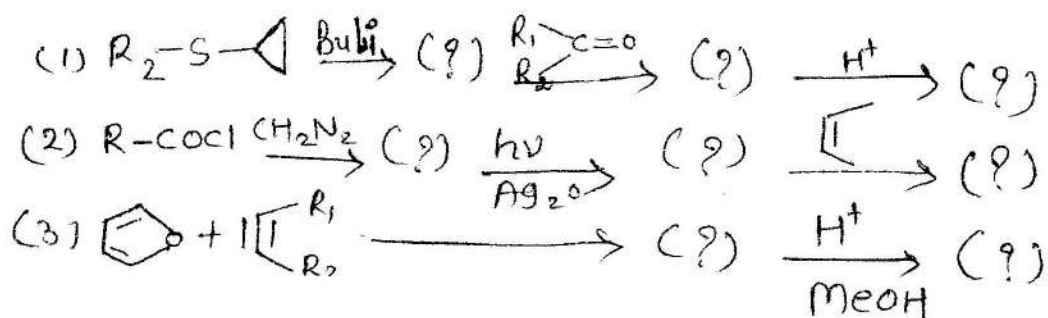 (1) R₂-S- BuLi (?) R₁ R₂ C=O (?) H⁺ (?)
(2) R-COCl CH₂N₂ (?) hν Ag₂O (?) (?)
(3) O + R₁ R₂ (?) H⁺ MeOH (?)